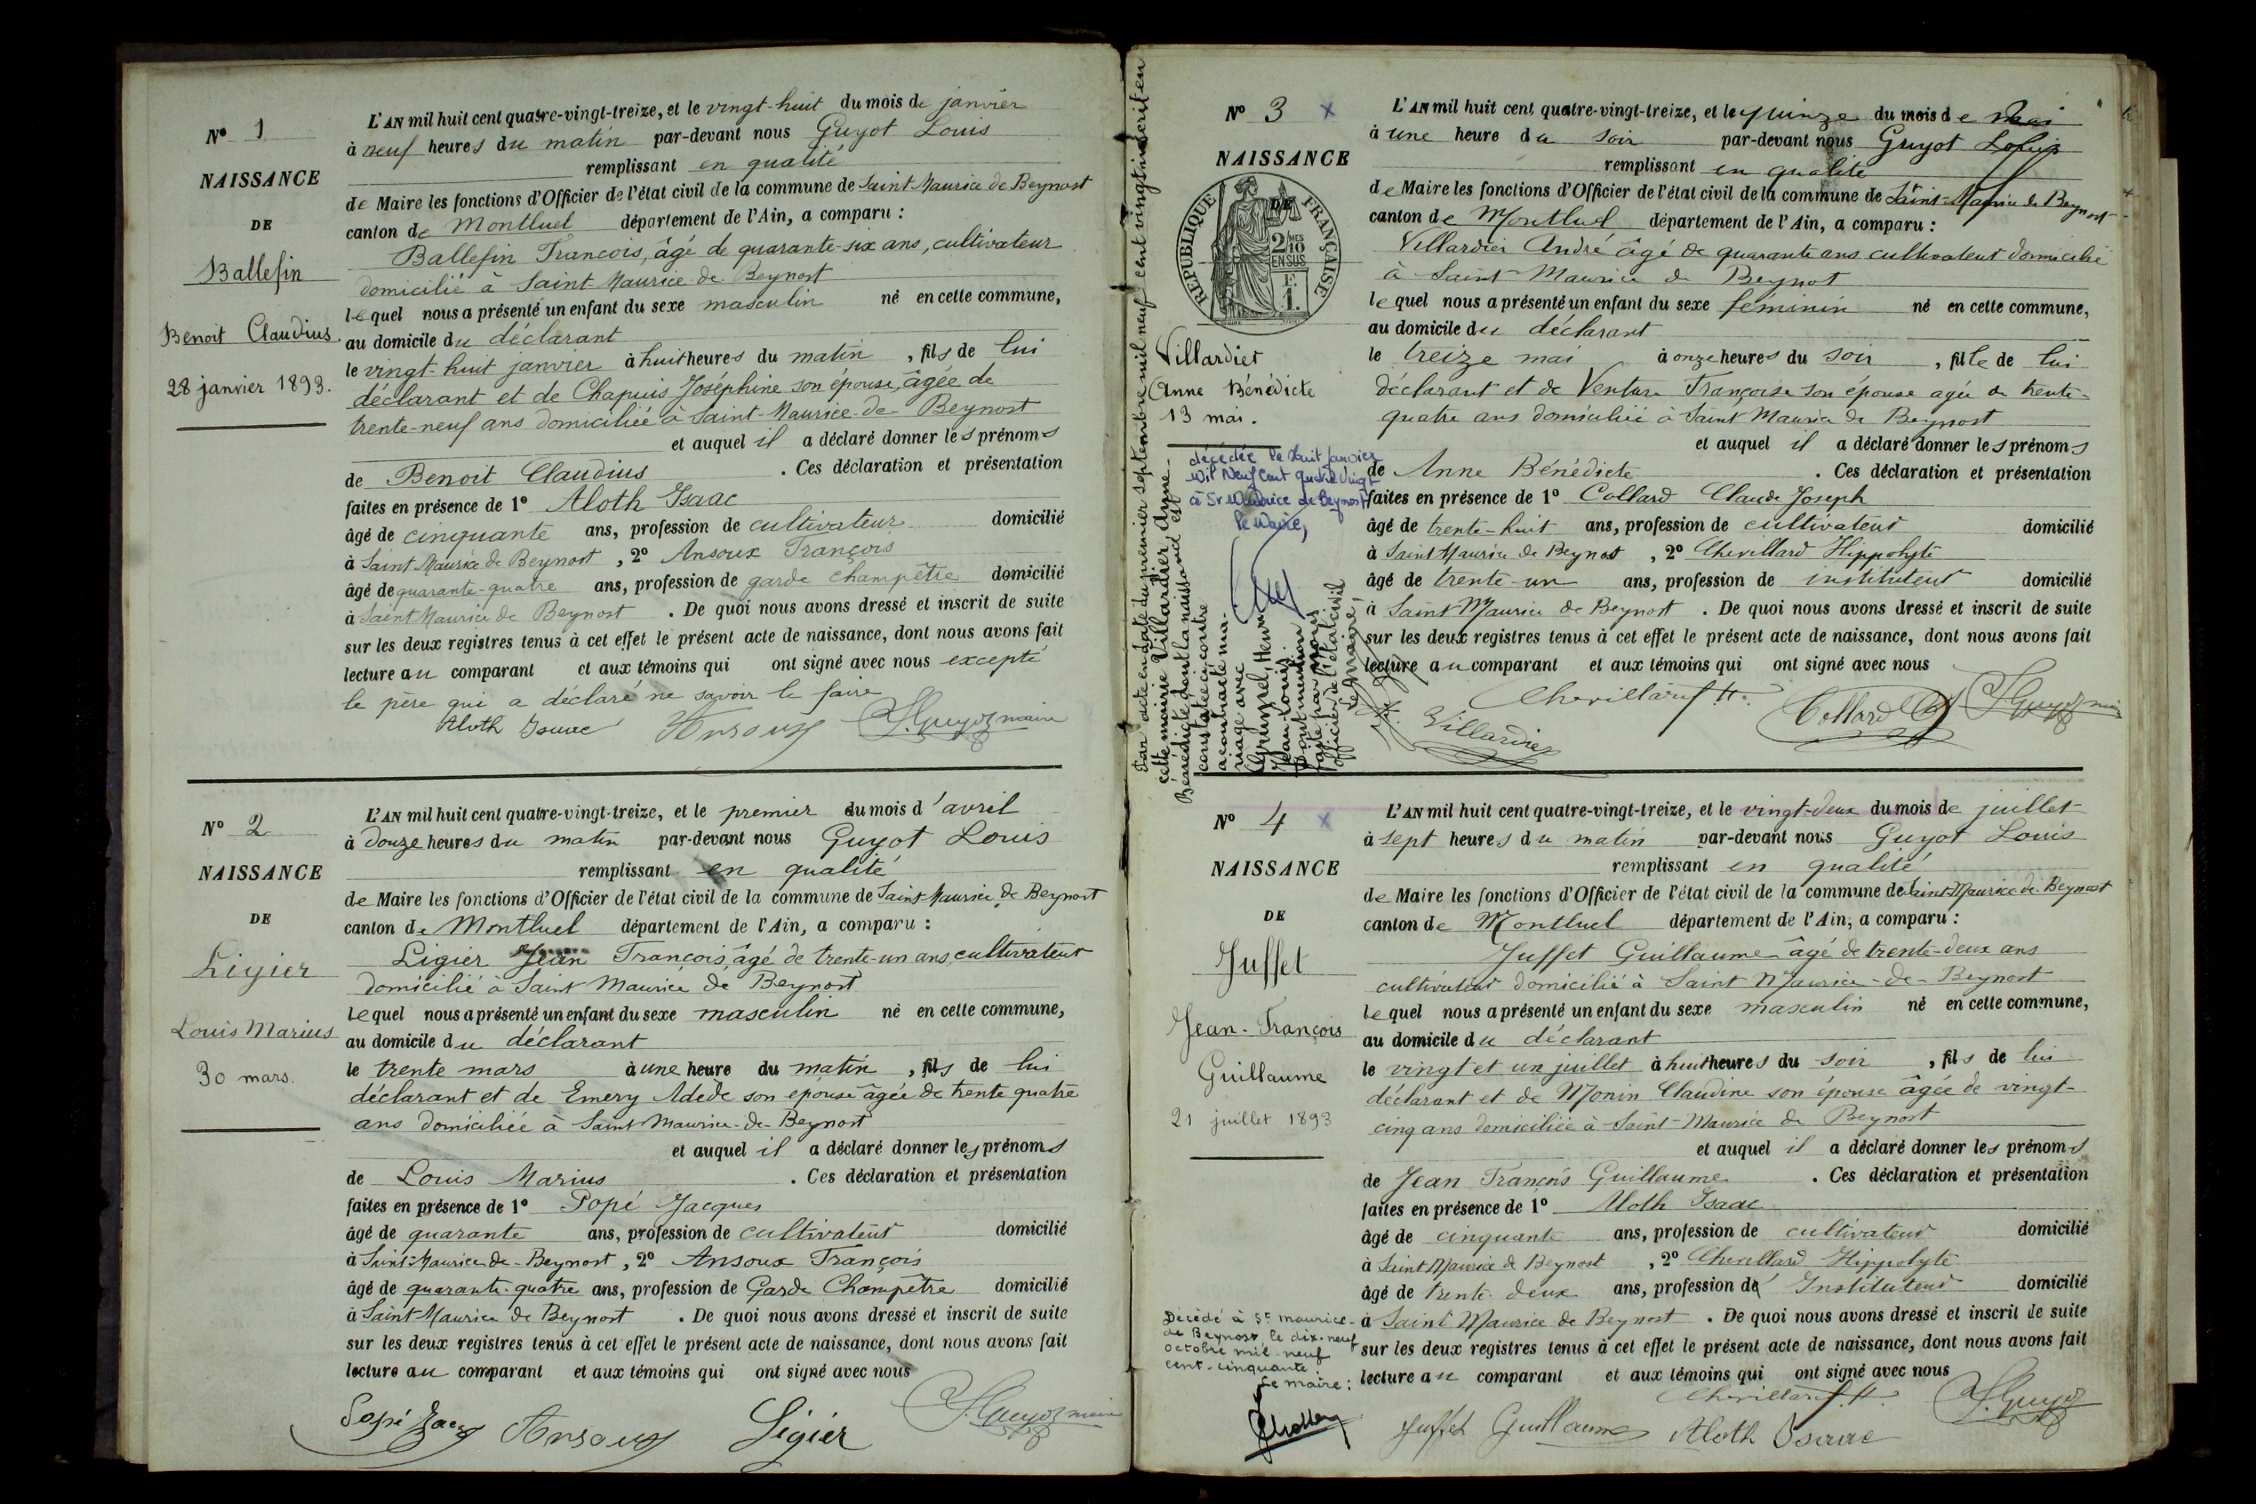 N° 1
NAISSANCE
DE
Ballefin
Benoit Claudius
28 janvier 1893.
L'AN mil huit cent quatre-vingt-treize, et le vingt-huit du mois de janvier
à neuf heures du matin par-devant nous Guyot Louis
remplissant en qualité
de Maire les fonctions d'Officier de l'état civil de la commune de Saint Maurice de Beynost
canton de Montluel département de l'Ain, a comparu :
Ballefin Francois, âgé de quarante-six ans, cultivateur
domicilié à Saint Maurice de Beynost
lequel nous a présenté un enfant du sexe masculin né en cette commune,
au domicile du déclarant
le vingt-huit janvier à huit heures du matin, fils de lui
déclarant et de Chapuis Joséphine son épouse, âgée de
trente-neuf ans domiciliée à Saint-Maurice-de-Beynost
et auquel il a déclaré donner les prénoms
de Benoit Claudius. Ces déclaration et présentation
faites en présence de 1° Aloth Isaac
âgé de cinquante ans, profession de cultivateur domicilié
à Saint Maurice de Beynost, 2° Ansoux François
âgé de quarante-quatre ans, profession de garde champêtre domicilié
à Saint Maurice de Beynost. De quoi nous avons dressé et inscrit de suite
sur les deux registres tenus à cet effet le présent acte de naissance, dont nous avons fait
lecture au comparant et aux témoins qui ont signé avec nous excepté
le père qui a déclaré ne savoir le faire
Aloth Isaac Ansoux L. Guyot maire
N° 2
NAISSANCE
DE
Ligier
Louis Marius
30 mars.
L'AN mil huit cent quatre-vingt-treize, et le premier du mois d'avril
à douze heures du matin par-devant nous Guyot Louis
remplissant en qualité
de Maire les fonctions d'Officier de l'état civil de la commune de Saint Maurice de Beynost
canton de Montluel département de l'Ain, a comparu :
Ligier Jean François, âgé de trente-un ans, cultivateur
domicilié à Saint Maurice de Beynost
lequel nous a présenté un enfant du sexe masculin né en cette commune,
au domicile du déclarant
le trente mars à une heure du matin, fils de lui
déclarant et de Emery Adède son épouse âgée de trente quatre
ans domiciliée à Saint Maurice-de-Beynost
et auquel il a déclaré donner les prénoms
de Louis Marius. Ces déclaration et présentation
faites en présence de 1° Popé Jacques
âgé de quarante ans, profession de cultivateur domicilié
à Saint-Maurice-de-Beynost, 2° Ansoux François
âgé de quarante-quatre ans, profession de Garde Champêtre domicilié
à Saint Maurice de Beynost. De quoi nous avons dressé et inscrit de suite
sur les deux registres tenus à cet effet le présent acte de naissance, dont nous avons fait
lecture au comparant et aux témoins qui ont signé avec nous
Popé Ansoux Ligier L. Guyot maire
N° 3 x
NAISSANCE
DE
RÉPUBLIQUE FRANÇAISE
2/10 MES
EN SUS
F.
1.
Villardier
Anne Bénédicte
13 mai.
décédée le huit janvier
Mil Neuf Cent quatre vingt
à St Maurice de Beynost
le Maire,
Par acte en date du premier septembre mil neuf cent vingt inscrit en
cette mairie Villardier Anne-
Bénédicte dont la naissance est
constatée ci-contre
a contracté ma-
riage avec
Henri
Jean Louis.
Dont mention
faite par nous
officier de l'état civil
Le Maire,
L'AN mil huit cent quatre-vingt-treize, et le quinze du mois de mai
à une heure du soir par-devant nous Guyot Louis
remplissant en qualité
de Maire les fonctions d'Officier de l'état civil de la commune de Saint-Maurice de Beynost
canton de Montluel département de l'Ain, a comparu :
Villardier André âgé de quarante ans cultivateur domicilié
à Saint-Maurice de Beynost
lequel nous a présenté un enfant du sexe féminin né en cette commune,
au domicile du déclarant
le treize mai à onze heures du soir, fille de lui
déclarant et de Venture Françoise son épouse agée de trente-
quatre ans domiciliée à Saint Maurice de Beynost
et auquel il a déclaré donner les prénoms
de Anne Bénédicte. Ces déclaration et présentation
faites en présence de 1° Collard Claude Joseph
âgé de trente-huit ans, profession de cultivateur domicilié
à Saint Maurice de Beynost, 2° Chevillard Hippolyte
âgé de trente-un ans, profession de instituteur domicilié
à Saint Maurice de Beynost. De quoi nous avons dressé et inscrit de suite
sur les deux registres tenus à cet effet le présent acte de naissance, dont nous avons fait
lecture au comparant et aux témoins qui ont signé avec nous
Villardier Chevillard H. Collard L. Guyot
N° 4 x
NAISSANCE
DE
Juffet
Jean-François
Guillaume
21 juillet 1893
Décédé à St Maurice-
de Beynost le dix-neuf
octobre mil-neuf
cent-cinquante
Le maire :
L'AN mil huit cent quatre-vingt-treize, et le vingt-deux du mois de juillet
à sept heures du matin par-devant nous Guyot Louis
remplissant en qualité
de Maire les fonctions d'Officier de l'état civil de la commune de Saint-Maurice de Beynost
canton de Montluel département de l'Ain, a comparu :
Juffet Guillaume âgé de trente-deux ans
cultivateur domicilié à Saint Maurice-de-Beynost
lequel nous a présenté un enfant du sexe masculin né en cette commune,
au domicile du déclarant
le vingt et un juillet à huit heures du soir, fils de lui
déclarant et de Monin Claudine son épouse âgée de vingt-
cinq ans domiciliée à Saint-Maurice de Beynost
et auquel il a déclaré donner les prénoms
de Jean François Guillaume. Ces déclaration et présentation
faites en présence de 1° Aloth Isaac
âgé de cinquante ans, profession de cultivateur domicilié
à Saint Maurice de Beynost, 2° Chevillard Hippolyte
âgé de trente-deux ans, profession d'Instituteur domicilié
à Saint Maurice de Beynost. De quoi nous avons dressé et inscrit de suite
sur les deux registres tenus à cet effet le présent acte de naissance, dont nous avons fait
lecture au comparant et aux témoins qui ont signé avec nous
Chevillard H. L. Guyot
Juffet Guillaume Aloth Isaac